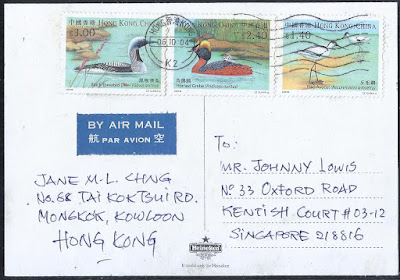 中國香港 HONG KONG, CHINA
$1.00
中國香港 HONG KONG, CHINA
$2.40
中國香港 HONG KONG, CHINA
$1.40
HONG KONG
06.10.04
K2
BY AIR MAIL
航 PAR AVION 空
JANE M-L. CHNG
NO.68 TAI KOK TSUI RD.
MONGKOK, KOWLOON
HONG KONG
TO:
MR. JOHNNY LOWIS
Nº 33 OXFORD ROAD
KENTISH COURT #03-12
SINGAPORE 218816
Heineken